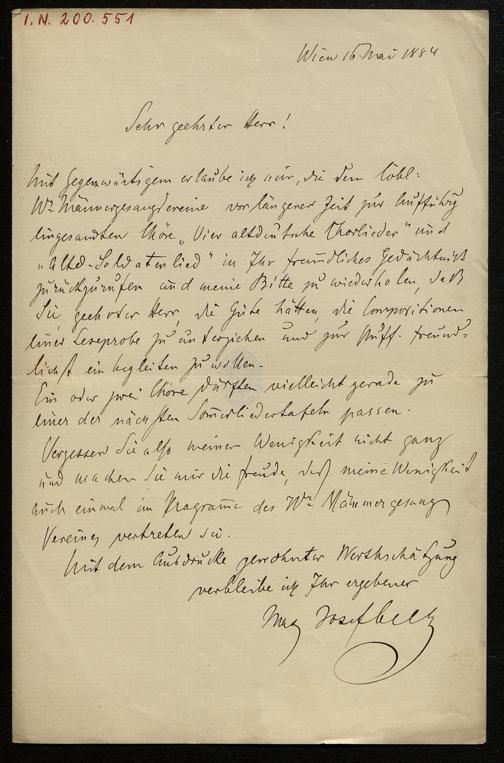 I.N. 200.551
Wien 16 Mai 1884
Sehr geehrter Herr!
Mit Gegenwärtigem erlaube ich mir, die dem löbl:
Wr Männergesangvereine vor längerer Zeit zur Aufführg
eingesandten Chöre „Vier altdeutsche Chorlieder" und
„Altd-Soldatenlied" in Ihr freundliches Gedächtniß
zurückzurufen und meine Bitte zu wiederholen, daß
Sie geehrter Herr, die Güte hätten, die Compositionen
einer Leseprobe zu unterziehen und zur Auff. freund-
lichst einbegleiten zu wollen.
Ein oder zwei Chöre dürften vielleicht gerade zu
einer der nächsten Som̄erliedertafeln passen.
Vergessen Sie also meiner Wenigkeit nicht ganz
und machen Sie mir die Freude, daß meine Wenigkeit
auch einmal im Program̄e des Wr Männergesang
Vereines vertreten sei.
Mit dem Ausdrucke gewohnter Werthschätzung
verbleibe ich Ihr ergebener
Max Josef Beer